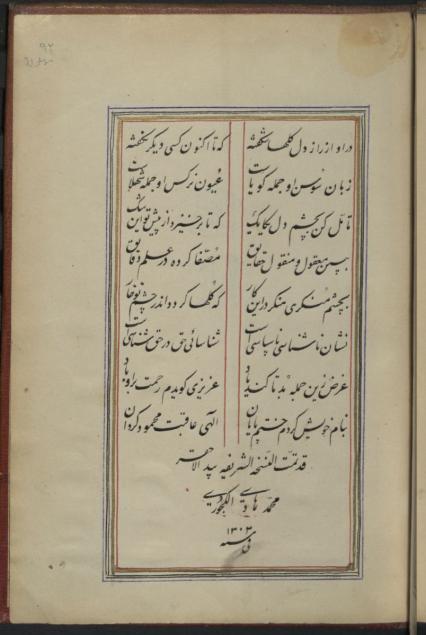 ۹۲
در او از راز دل گلها شکفته که تا اکنون کسی دیگر نگفته
زبان سوسن او جمله گویاست عیون نرگس او جمله شهلاست
تأمل کن بچشم دل یکایک که تا برخیزد از پیش تو این شک
ببین معقول و منقول حقایق مصفا کرده در علم دقایق
بچشم منکری منگر در این کار که گلها گردد اندر چشم تو خار
نشان ناشناسی ناسپاسی است شناسائی حق در حق شناسی است
غرض زین جمله بد تا گر کند یاد عزیزی گویدم رحمت بر او باد
بنام خویش کردم ختم پایان الهی عاقبت محمود گردان
قد تمت النسخة الشریفه بید الاحقر
محمد هادی
۱۳۰۳
فی سنه